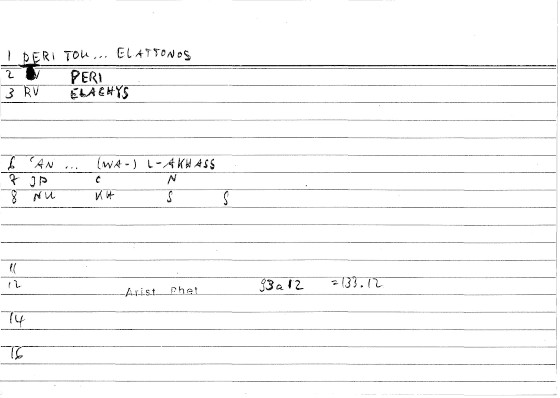 1 PERI TOU... ELATTONOS
2 RV PERI
3 RV ELACHYS
6 'AN ... (WA-) L-AKHASS
7 JP C N
8 NU KH S S
11
12 Arist Rhet 93a12 =133.12
14
16